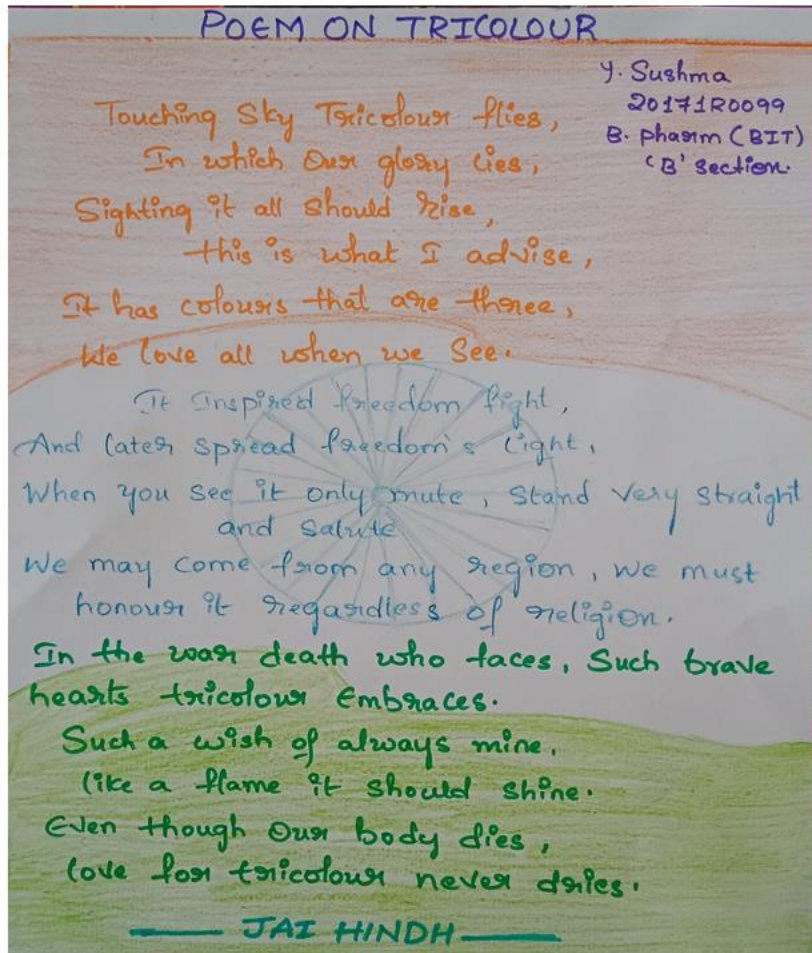 POEM ON TRICOLOUR
Y. Sushma
20171R0099
B. pharm (BIT)
'B' section.
Touching Sky Tricolour flies,
In which Our glory lies,
Sighting it all should rise,
this is what I advise,
It has colours that are three,
We love all when we See.
It Inspired freedom fight,
And later spread freedom's light,
When you see it only mute, stand very straight
and salute
We may come from any region, we must
honour it regardless of religion.
In the war death who faces, Such brave
hearts tricolour Embraces.
Such a wish of always mine,
like a flame it should shine.
Even though our body dies,
love for tricolour never dries.
JAI HINDH